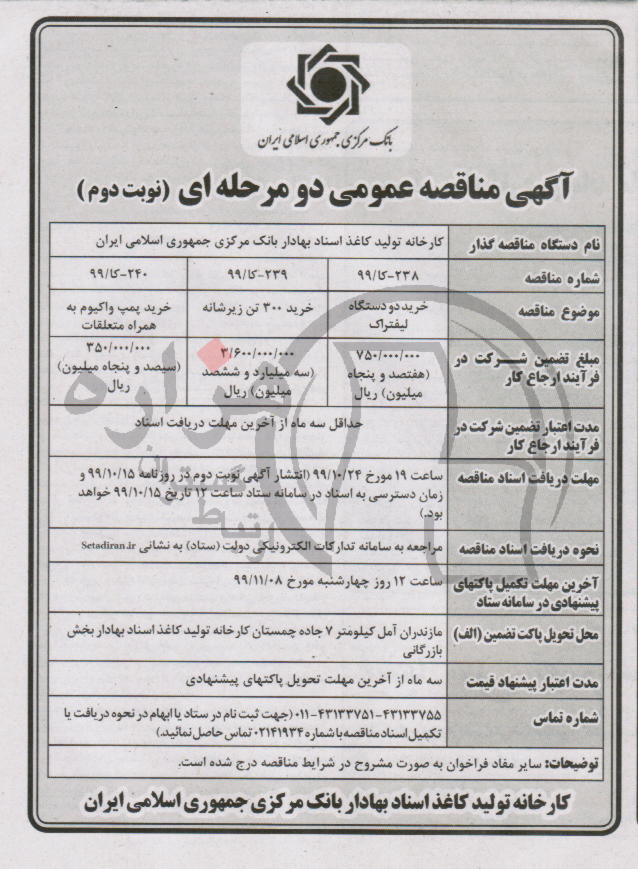 بانک مرکزی جمهوری اسلامی ایران
آگهی مناقصه عمومی دو مرحله ای (نوبت دوم)
نام دستگاه مناقصه گذار
کارخانه تولید کاغذ اسناد بهادار بانک مرکزی جمهوری اسلامی ایران
شماره مناقصه
۲۳۸-کا/۹۹
۲۳۹-کا/۹۹
۲۴۰-کا/۹۹
موضوع مناقصه
خرید دو دستگاه
لیفتراک
خرید ۳۰۰ تن زیرشانه
خرید پمپ واکیوم به
همراه متعلقات
مبلغ تضمین شرکت در
فرآیند ارجاع کار
۷۵۰/۰۰۰/۰۰۰
(هفتصد و پنجاه
میلیون) ریال
۳/۶۰۰/۰۰۰/۰۰۰
(سه میلیارد و ششصد
میلیون) ریال
۳۵۰/۰۰۰/۰۰۰
(سیصد و پنجاه میلیون)
ریال
مدت اعتبار تضمین شرکت در
فرآیند ارجاع کار
حداقل سه ماه از آخرین مهلت دریافت اسناد
مهلت دریافت اسناد مناقصه
ساعت ۱۹ مورخ ۹۹/۱۰/۲۴ (انتشار آگهی نوبت دوم در روزنامه ۹۹/۱۰/۱۵ و
زمان دسترسی به اسناد در سامانه ستاد ساعت ۱۲ تاریخ ۹۹/۱۰/۱۵ خواهد
بود.)
نحوه دریافت اسناد مناقصه
مراجعه به سامانه تدارکات الکترونیکی دولت (ستاد) به نشانی Setadiran.ir
آخرین مهلت تکمیل پاکتهای
پیشنهادی در سامانه ستاد
ساعت ۱۲ روز چهارشنبه مورخ ۹۹/۱۱/۰۸
محل تحویل پاکت تضمین (الف)
مازندران آمل کیلومتر ۷ جاده چمستان کارخانه تولید کاغذ اسناد بهادار بخش
بازرگانی
مدت اعتبار پیشنهاد قیمت
سه ماه از آخرین مهلت تحویل پاکتهای پیشنهادی
شماره تماس
۴۳۱۳۳۷۵۵-۰۱۱-۴۳۱۳۳۷۵۱ (جهت ثبت نام در ستاد یا ابهام در نحوه دریافت یا
تکمیل اسناد مناقصه با شماره ۰۲۱۴۱۹۳۴ تماس حاصل نمائید.)
توضیحات: سایر مفاد فراخوان به صورت مشروح در شرایط مناقصه درج شده است.
کارخانه تولید کاغذ اسناد بهادار بانک مرکزی جمهوری اسلامی ایران
هزاره
ارتباط